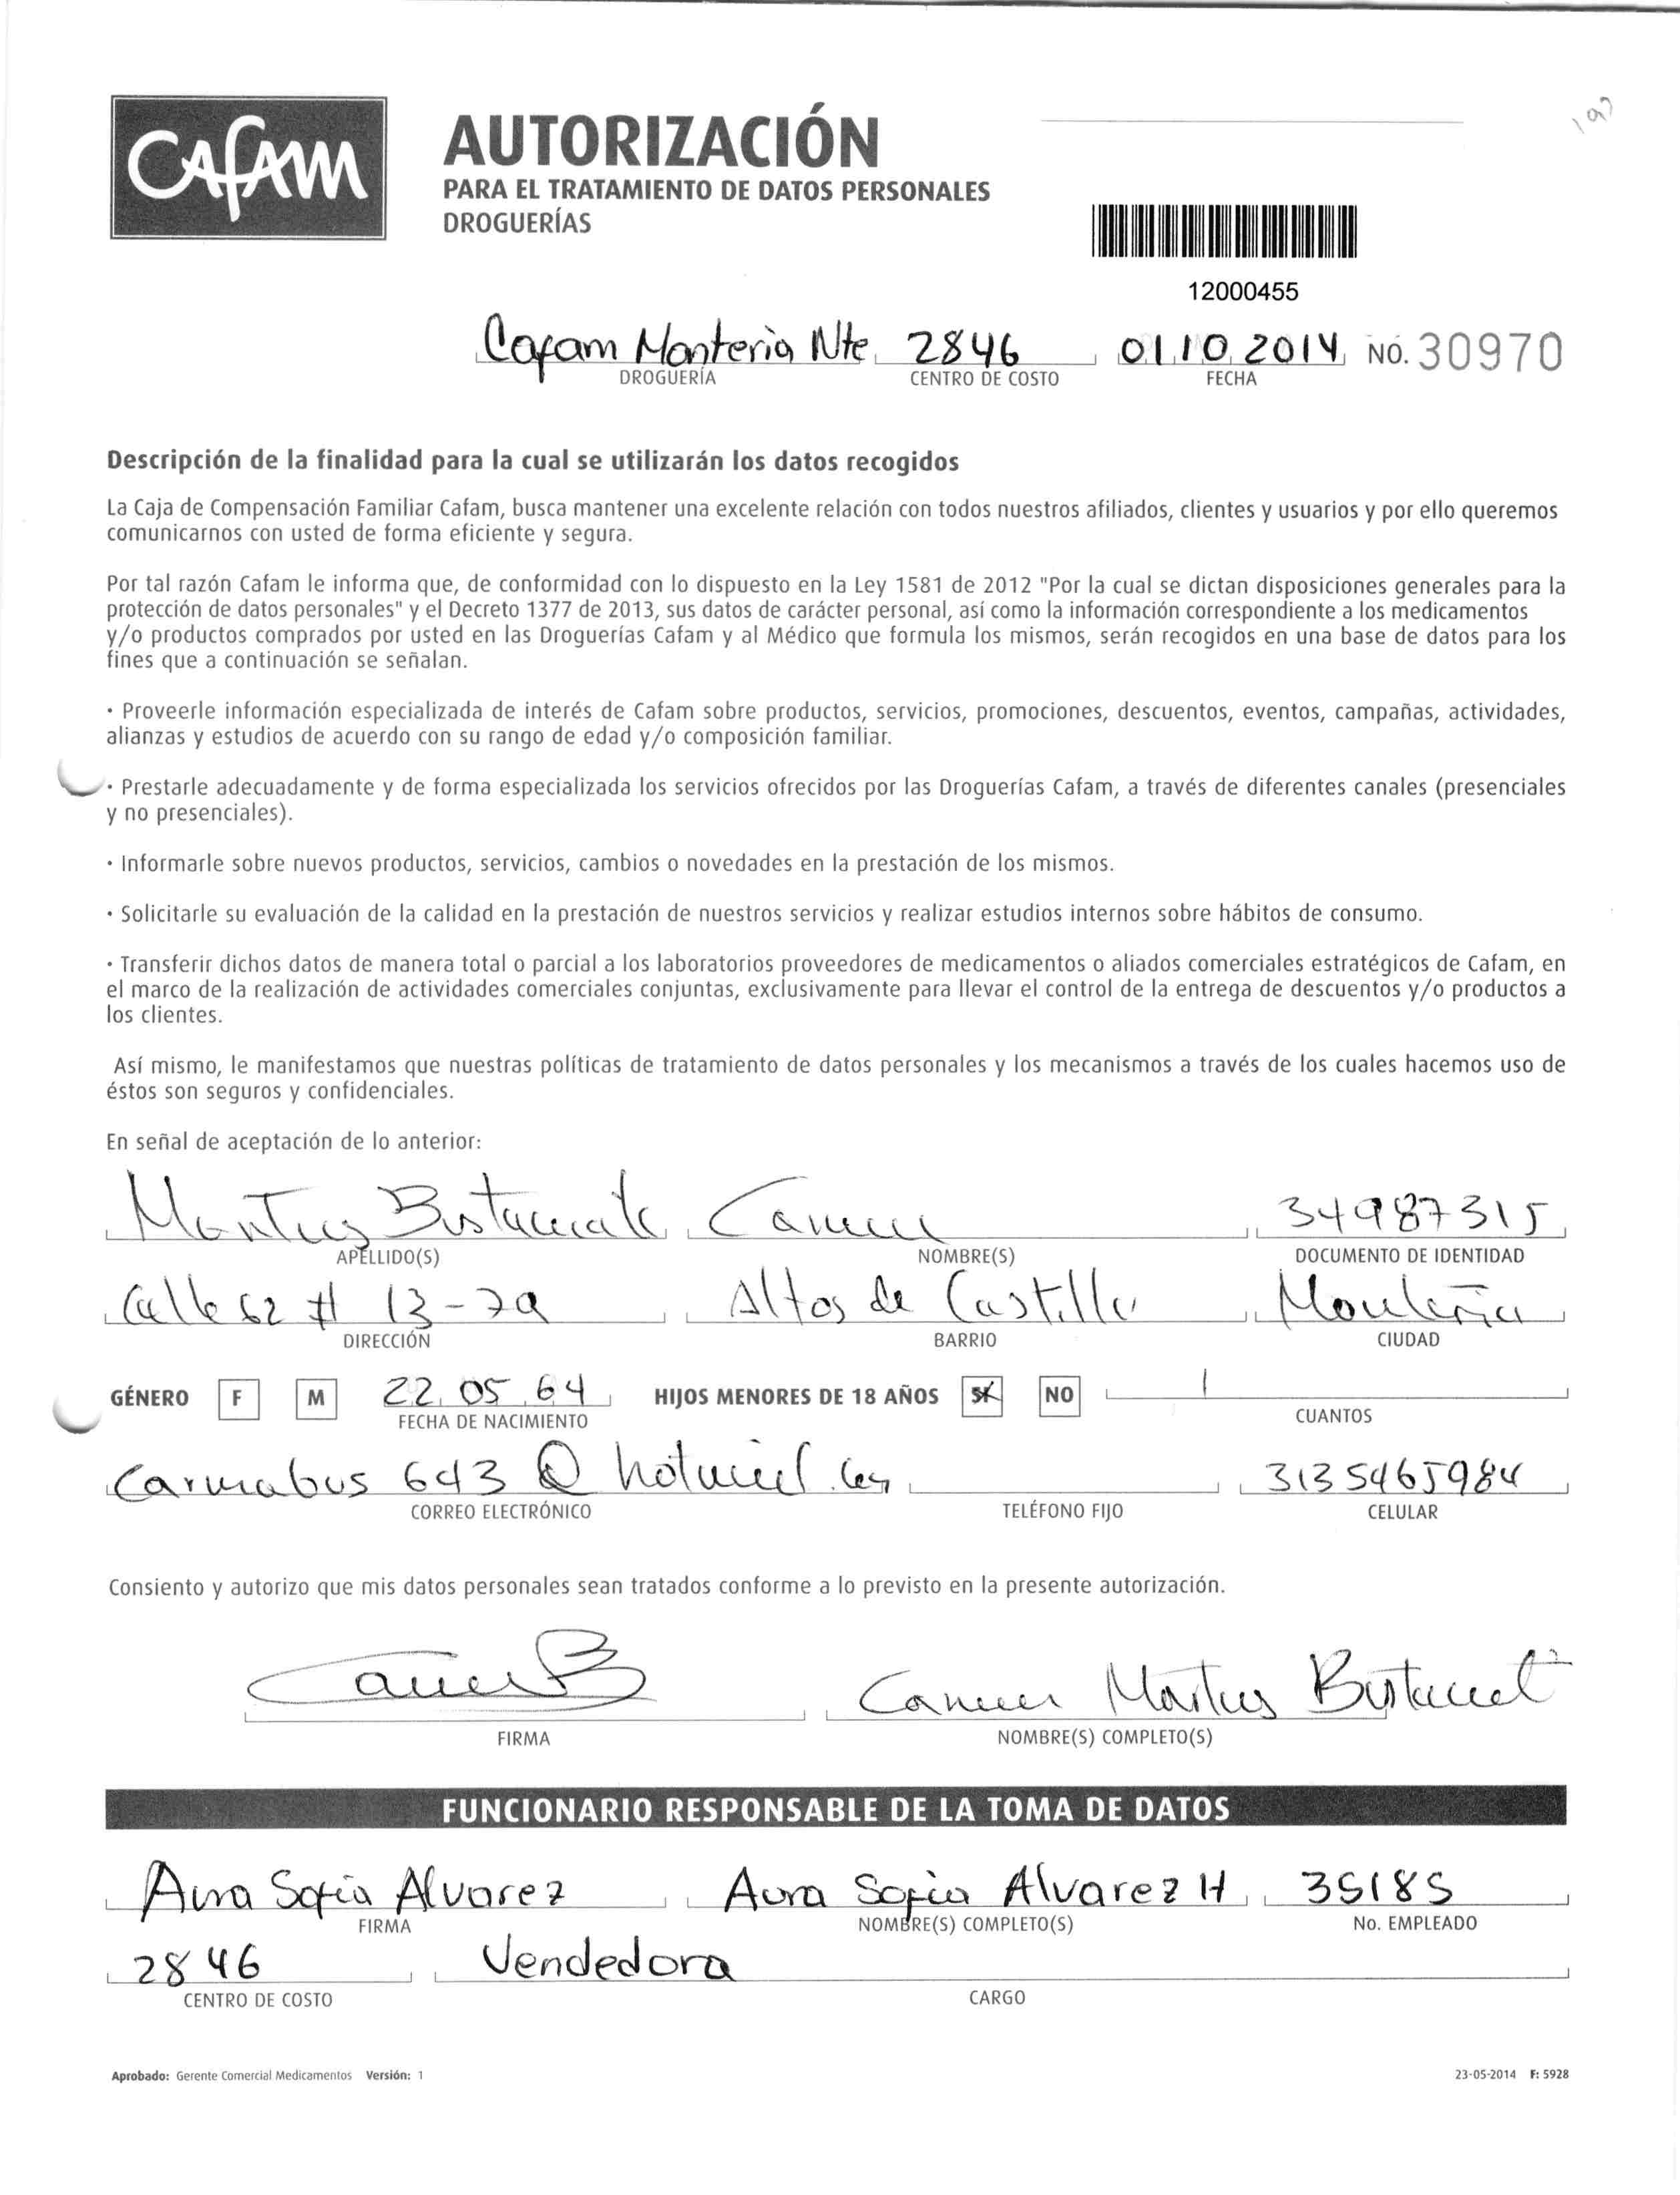 CAFAM
AUTORIZACIÓN
PARA EL TRATAMIENTO DE DATOS PERSONALES
DROGUERÍAS
12000455
Cafam Monteria Nte 2846 01.10.2014 NO. 30970
DROGUERÍA CENTRO DE COSTO FECHA
Descripción de la finalidad para la cual se utilizarán los datos recogidos
La Caja de Compensación Familiar Cafam, busca mantener una excelente relación con todos nuestros afiliados, clientes y usuarios y por ello queremos
comunicarnos con usted de forma eficiente y segura.
Por tal razón Cafam le informa que, de conformidad con lo dispuesto en la Ley 1581 de 2012 "Por la cual se dictan disposiciones generales para la
protección de datos personales" y el Decreto 1377 de 2013, sus datos de carácter personal, así como la información correspondiente a los medicamentos
y/o productos comprados por usted en las Droguerías Cafam y al Médico que formula los mismos, serán recogidos en una base de datos para los
fines que a continuación se señalan.
· Proveerle información especializada de interés de Cafam sobre productos, servicios, promociones, descuentos, eventos, campañas, actividades,
alianzas y estudios de acuerdo con su rango de edad y/o composición familiar.
· Prestarle adecuadamente y de forma especializada los servicios ofrecidos por las Droguerías Cafam, a través de diferentes canales (presenciales
y no presenciales).
· Informarle sobre nuevos productos, servicios, cambios o novedades en la prestación de los mismos.
· Solicitarle su evaluación de la calidad en la prestación de nuestros servicios y realizar estudios internos sobre hábitos de consumo.
· Transferir dichos datos de manera total o parcial a los laboratorios proveedores de medicamentos o aliados comerciales estratégicos de Cafam, en
el marco de la realización de actividades comerciales conjuntas, exclusivamente para llevar el control de la entrega de descuentos y/o productos a
los clientes.
Así mismo, le manifestamos que nuestras políticas de tratamiento de datos personales y los mecanismos a través de los cuales hacemos uso de
éstos son seguros y confidenciales.
En señal de aceptación de lo anterior:
Bustamante Carmen 34987315
APELLIDO(S) NOMBRE(S) DOCUMENTO DE IDENTIDAD
Calle 62 # 13-79 Altos de Castilla Montería
DIRECCIÓN BARRIO CIUDAD
GÉNERO F M 22.05.64 HIJOS MENORES DE 18 AÑOS SI NO 1
FECHA DE NACIMIENTO CUANTOS
Carmabus 643 @ hotmail.com 3135465984
CORREO ELECTRÓNICO TELÉFONO FIJO CELULAR
Consiento y autorizo que mis datos personales sean tratados conforme a lo previsto en la presente autorización.
Carmen B Carmen Bustamante
FIRMA NOMBRE(S) COMPLETO(S)
FUNCIONARIO RESPONSABLE DE LA TOMA DE DATOS
Aura Sofia Alvarez Aura Sofia Alvarez H 35185
FIRMA NOMBRE(S) COMPLETO(S) No. EMPLEADO
2846 Vendedora
CENTRO DE COSTO CARGO
Aprobado: Gerente Comercial Medicamentos Versión: 1 23-05-2014 F: 5928